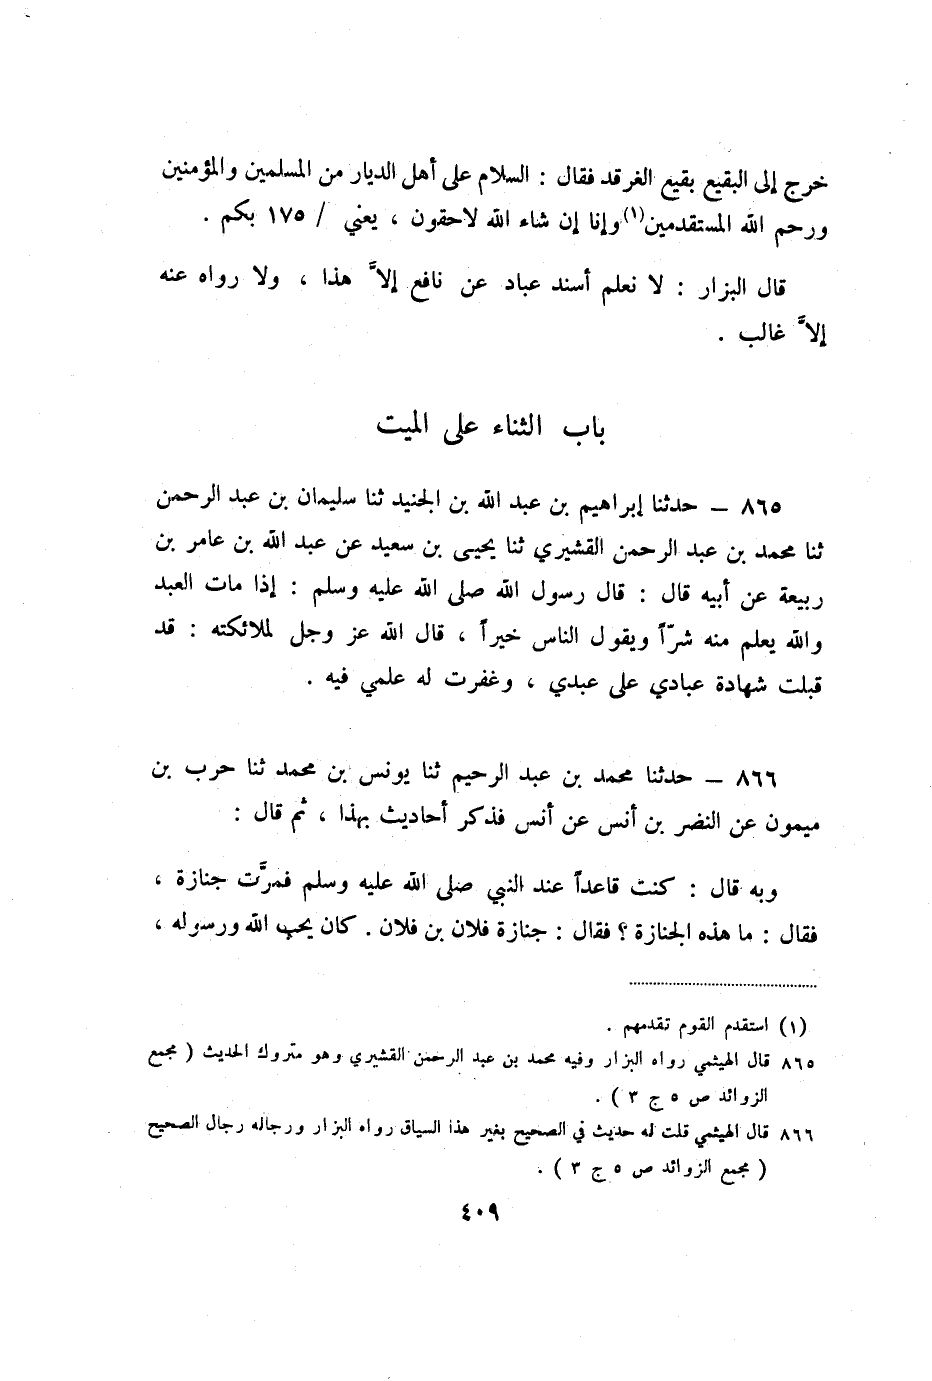 خرج إلى البقيع بقيع الغرقد فقال : السلام على أهل الديار من المسلمين والمؤمنين
ورحم الله المستقدمين(١) وإنا إن شاء الله لاحقون ، يعني / ١٧٥ بكم .
قال البزار : لا نعلم أسند عباد عن نافع إلاَّ هذا ، ولا رواه عنه
إلاَّ غالب .
باب الثناء على الميت
٨٦٥ – حدثنا إبراهيم بن عبد الله بن الجنيد ثنا سليمان بن عبد الرحمن
ثنا محمد بن عبد الرحمن القشيري ثنا يحيى بن سعيد عن عبد الله بن عامر بن
ربيعة عن أبيه قال : قال رسول الله صلى الله عليه وسلم : إذا مات العبد
والله يعلم منه شرّاً ويقول الناس خيراً ، قال الله عز وجل لملائكته : قد
قبلت شهادة عبادي على عبدي ، وغفرت له علمي فيه .
٨٦٦ – حدثنا محمد بن عبد الرحيم ثنا يونس بن محمد ثنا حرب بن
ميمون عن النضر بن أنس عن أنس فذكر أحاديث بهذا ، ثم قال :
وبه قال : كنت قاعداً عند النبي صلى الله عليه وسلم فمرَّت جنازة ،
فقال : ما هذه الجنازة ؟ فقال : جنازة فلان بن فلان . كان يحب الله ورسوله ،
(١) استقدم القوم تقدمهم .
٨٦٥ قال الهيثمي رواه البزار وفيه محمد بن عبد الرحمن القشيري وهو متروك الحديث ( مجمع
الزوائد ص ٥ ج ٣ ) .
٨٦٦ قال الهيثمي قلت له حديث في الصحيح بغير هذا السياق رواه البزار ورجاله رجال الصحيح
( مجمع الزوائد ص ٥ ج ٣ ) .
٤٠٩